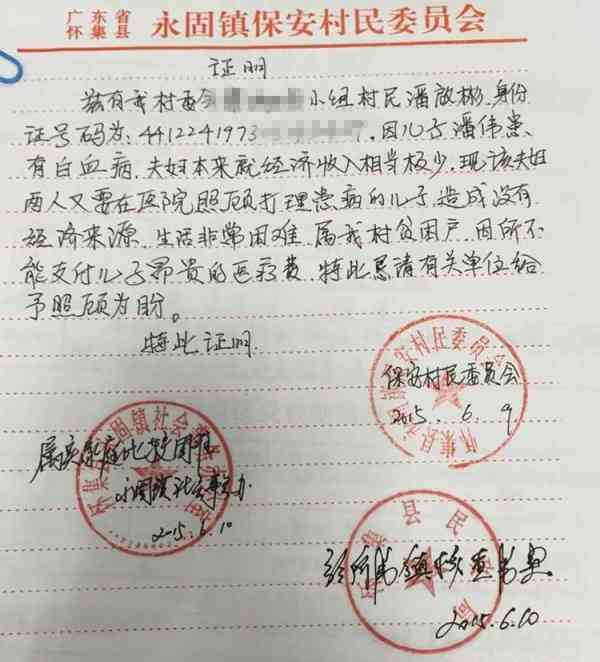 广东省
怀集县 永固镇保安村民委员会
证明
兹有我村委会 小组村民潘放彬,身份
证号码为:4412241973 ,因儿子潘伟患
有白血病,夫妇本来就经济收入相当极少,现该夫妇
两人又要在医院照顾打理患病的儿子,造成没有
经济来源,生活非常困难,属我村贫困户,因所不
能支付儿子昂贵的医疗费,特此恳请有关单位给
予照顾为盼。
特此证明
保安村民委员会
2015.6.9
属实家庭比较困难
永固镇社会事务办
2015.6.10
2015.6.10